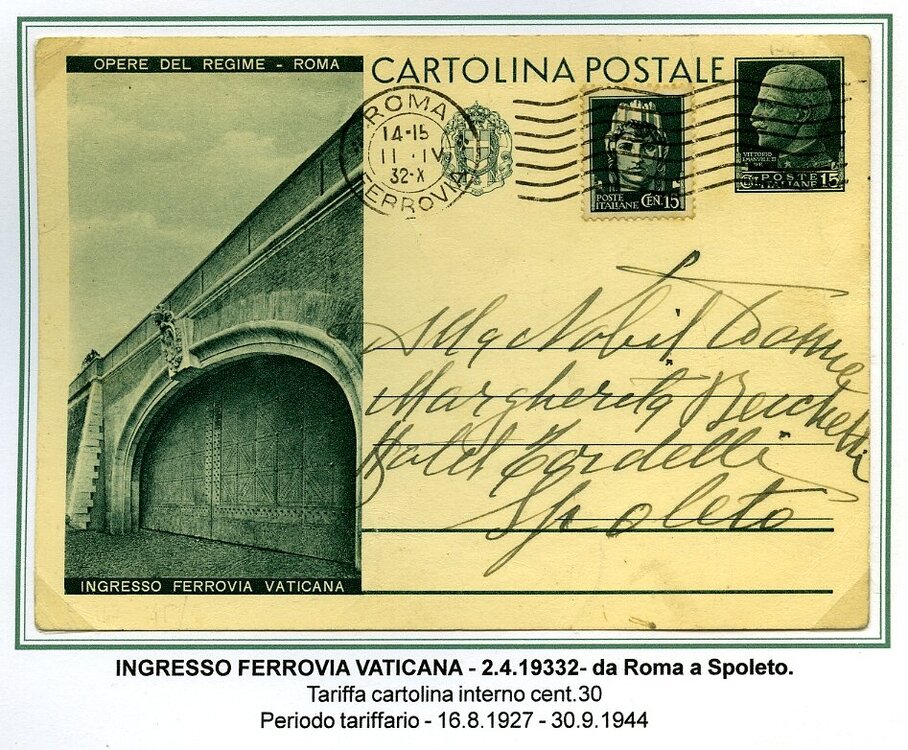 OPERE DEL REGIME - ROMA
CARTOLINA POSTALE
ROMA
14-15
11 · IV
32-X
FERROVIA
POSTE
ITALIANE CEN. 15
VITTORIO
EMANUELE III
POSTE
ITALIANE 15
Alla Nobil Donna
Margherita
Hotel Tordelli
Spoleto
INGRESSO FERROVIA VATICANA
INGRESSO FERROVIA VATICANA - 2.4.19332- da Roma a Spoleto.
Tariffa cartolina interno cent.30
Periodo tariffario - 16.8.1927 - 30.9.1944